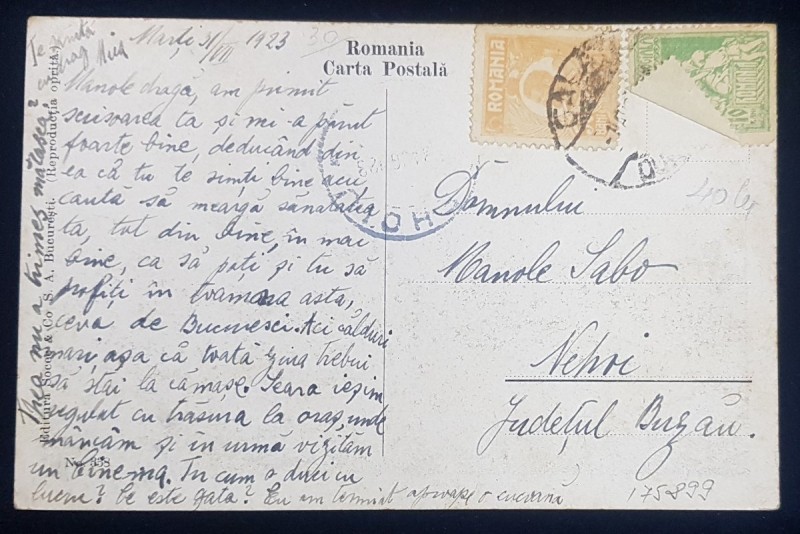 Marți 31/VII 1923
Manole dragă, am primit
scrisoarea ta și mi-a părut
foarte bine, deducând din
ea că tu te simți bine aci
caută să meargă sănătatea
ta, tot din bine, în mai
bine, ca să poți și tu să
profiți în toamna asta,
ceva de București. Aci călduri
mari, așa că toată ziua trebui
să stai la cămașe. Seara ieșim
regulat cu trăsura la oraș, unde
mâncăm și în urmă vizităm
un cinema. Tu cum o duci cu
lucru? Ce este gata? Eu am terminat aproape o cuvertură
Thea nu a trimes mătasea?
Te sărută
drag Mica
Editura Socec & Co S. A. București. (Reproducția oprită)
No.
Romania
Carta Postală
ROMANIA
GALA
Domnului
Manole Sabo
Nehoi
Județul Buzău.
40 lei
175899